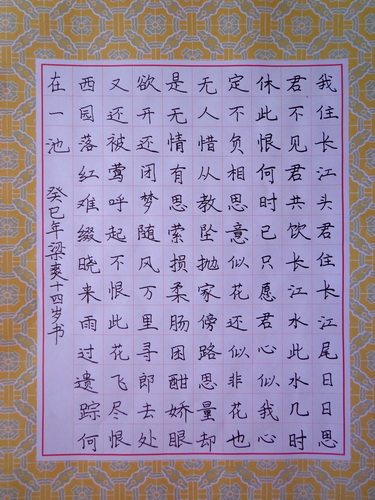 我住长江头君住长江尾日日思
君不见君共饮长江水此水几时
休此恨何时已只愿君心似我心
定不负相思意似花还似非花也
无人惜从教坠抛家傍路思量却
是无情有思萦损柔肠困酣娇眼
欲开还闭梦随风万里寻郎去处
又还被莺呼起不恨此花飞尽恨
西园落红难缀晓来雨过遗踪何
在一池
癸巳年梁爽十四岁书